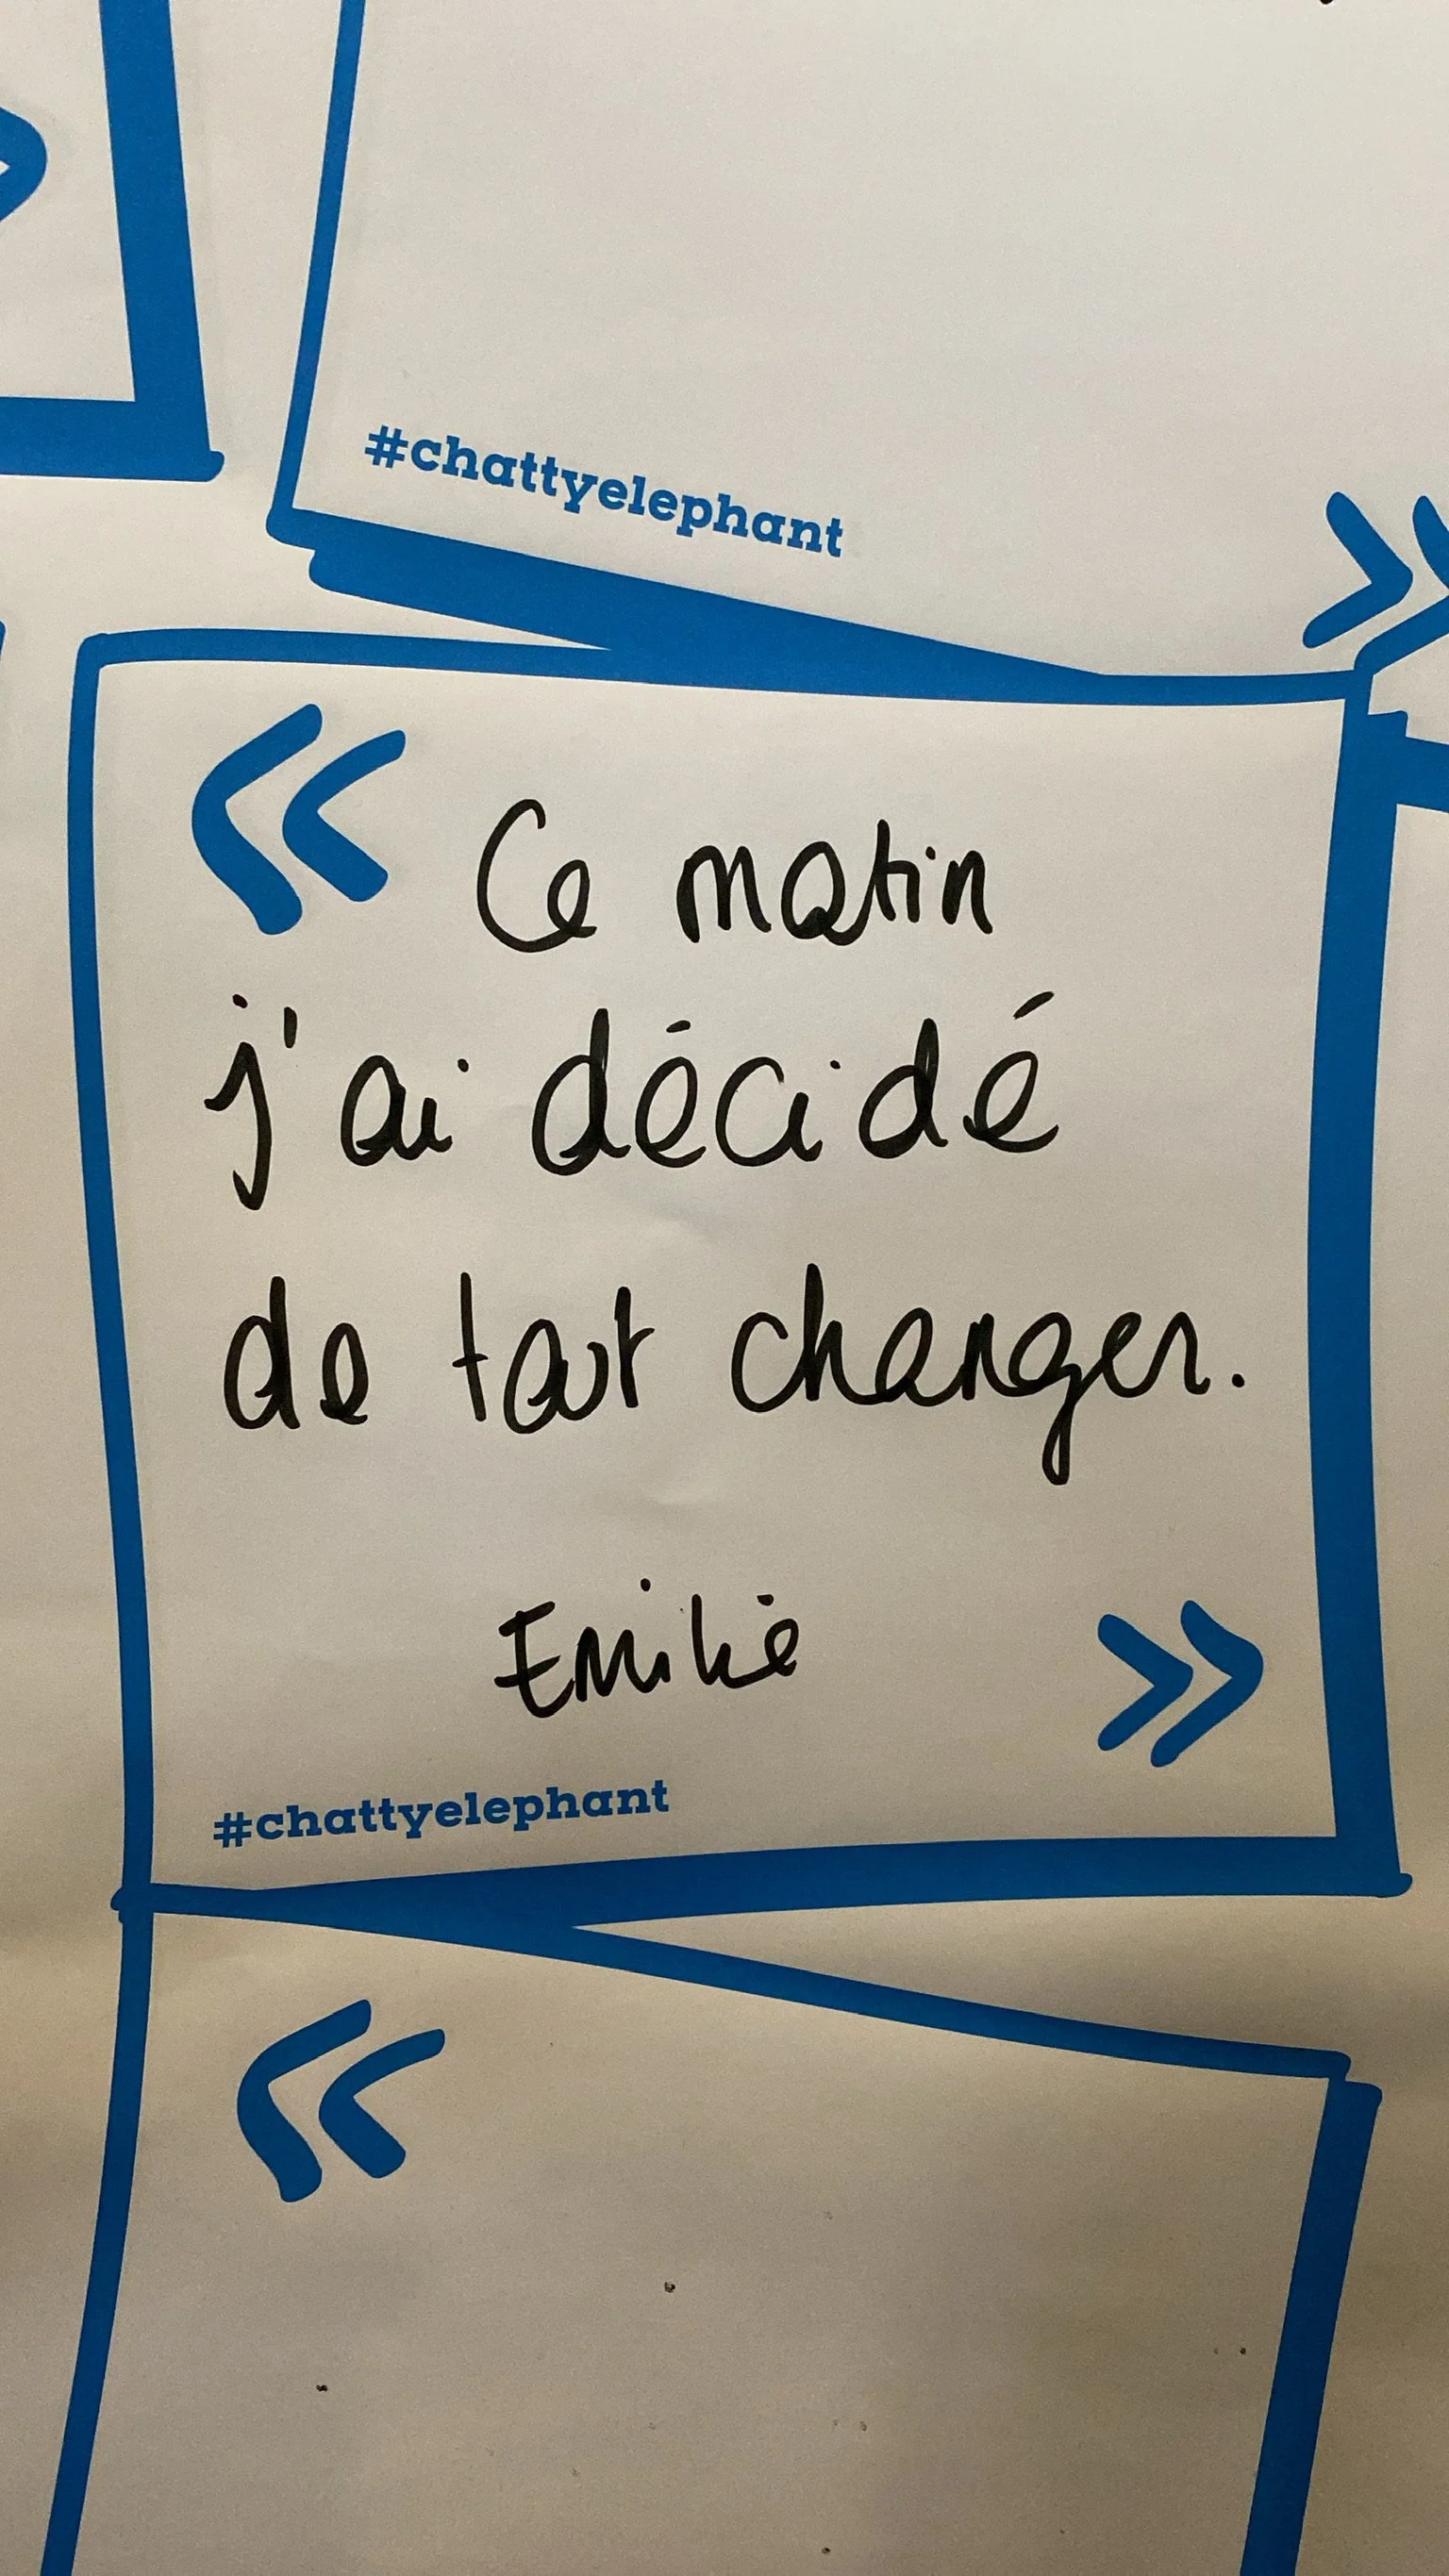 #chattyelephant
»
« Ce matin
j'ai décidé
de tout changer.
Emilie
»
#chattyelephant
«